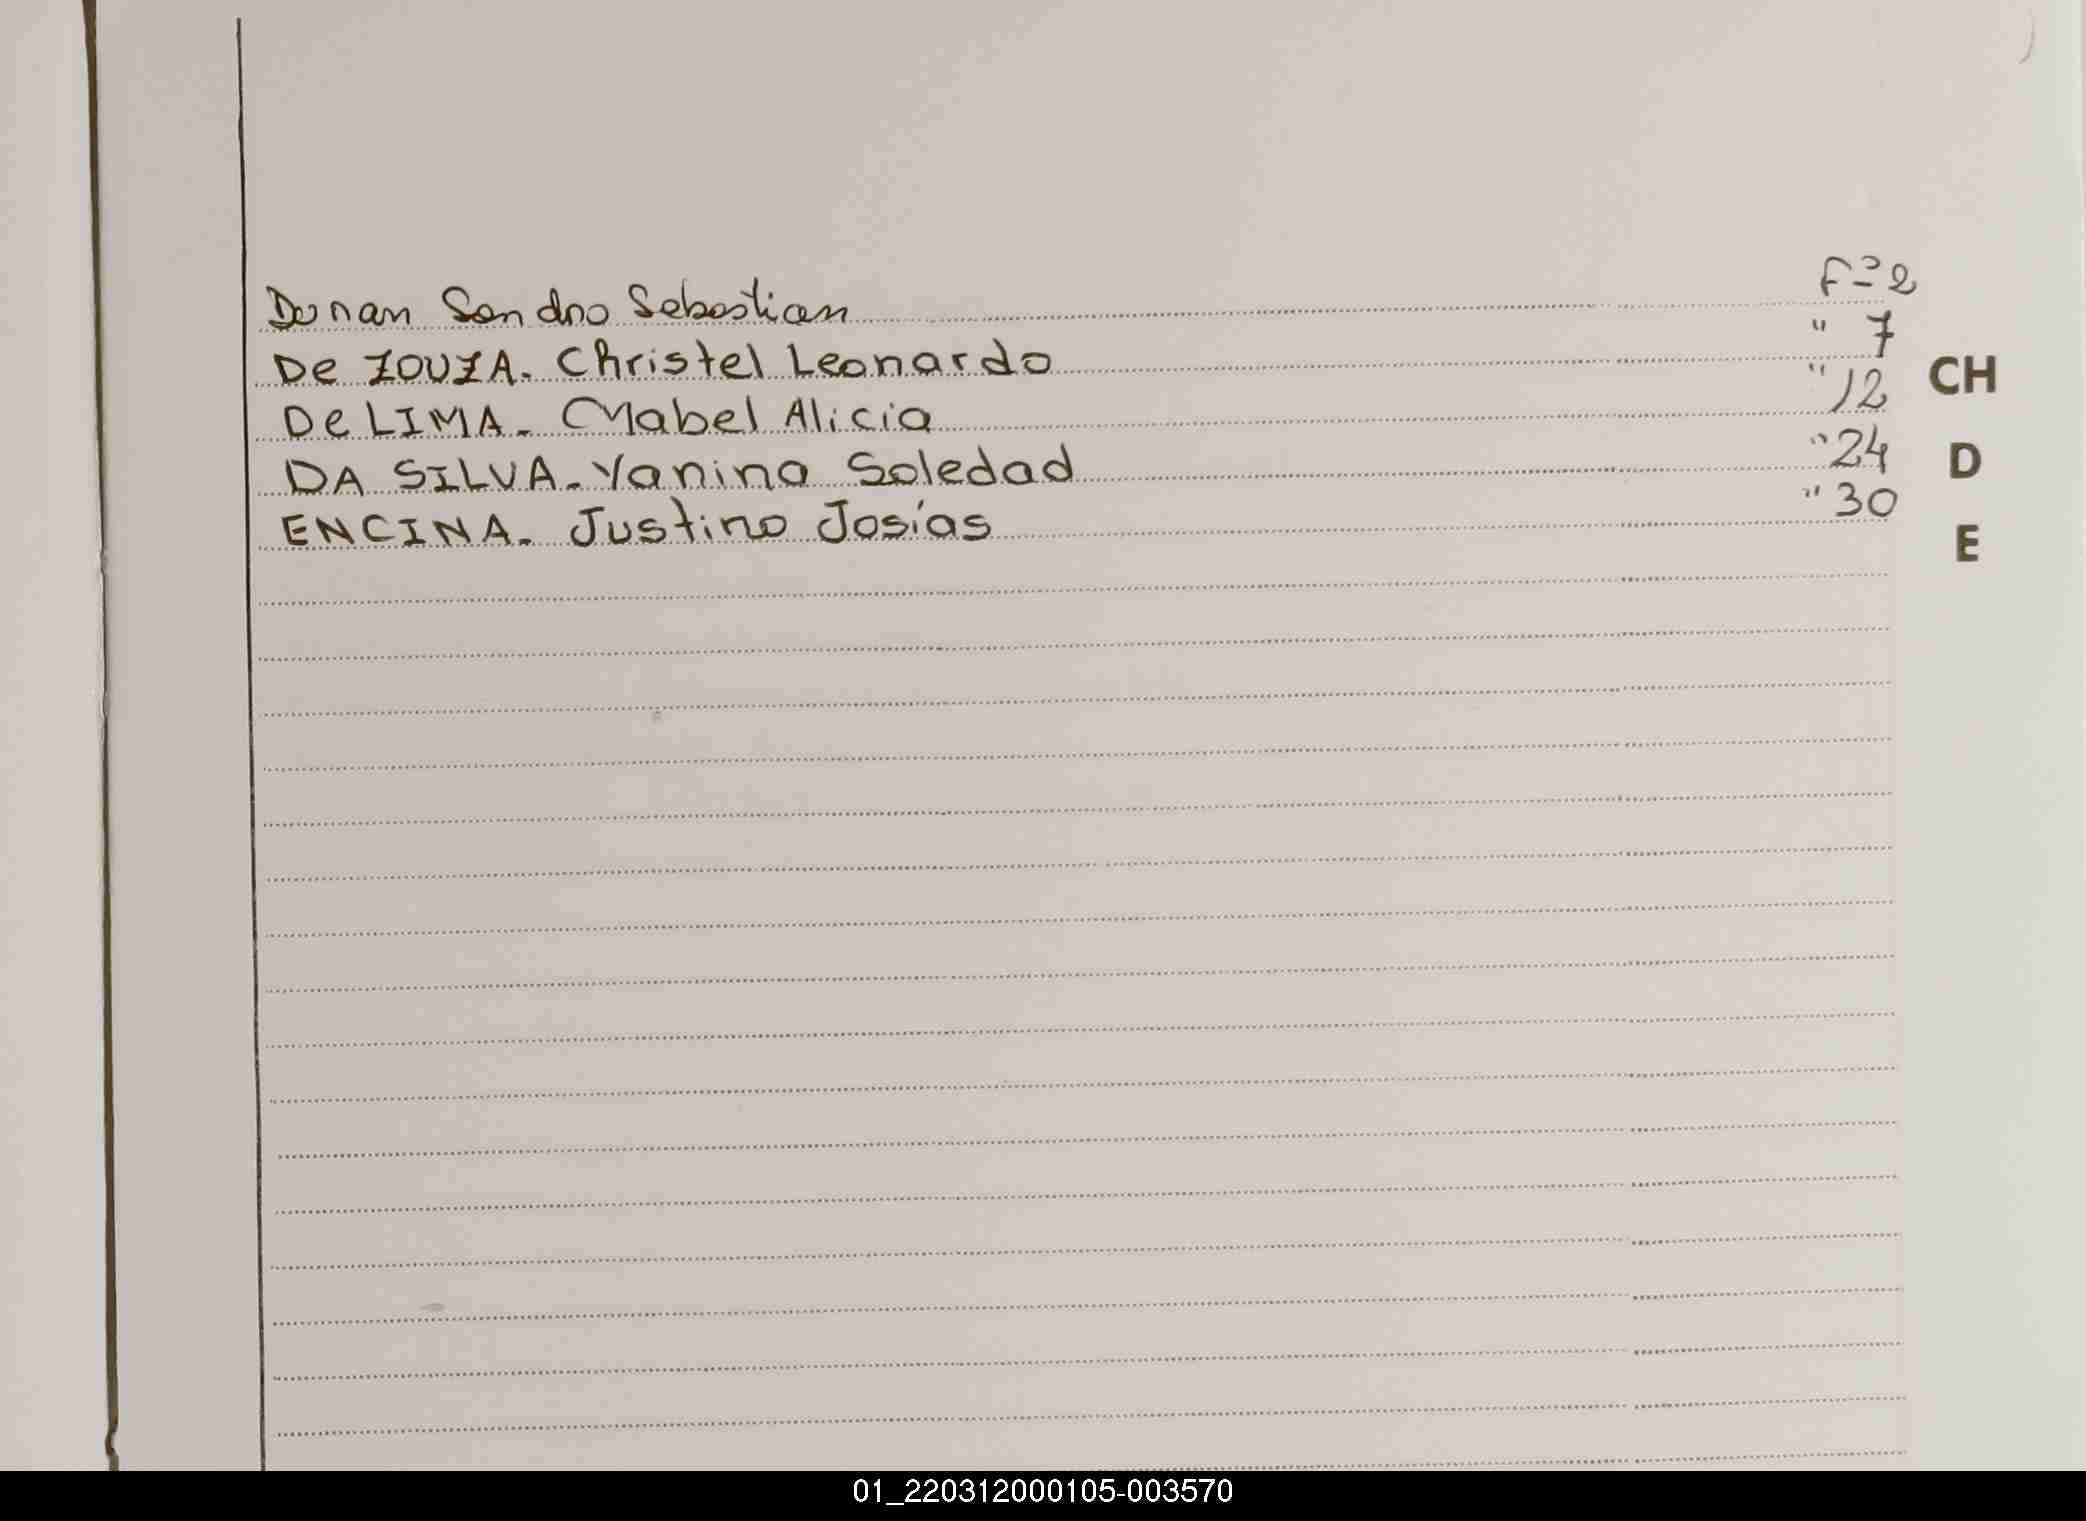 Duran Sandro Sebastian F=2
De ZOUZA. Christel Leonardo " 7
De LIMA. Mabel Alicia " 12
CH
DA SILVA. Yanina Soledad " 24
D
ENCINA. Justino Josías " 30
E
01_220312000105-003570